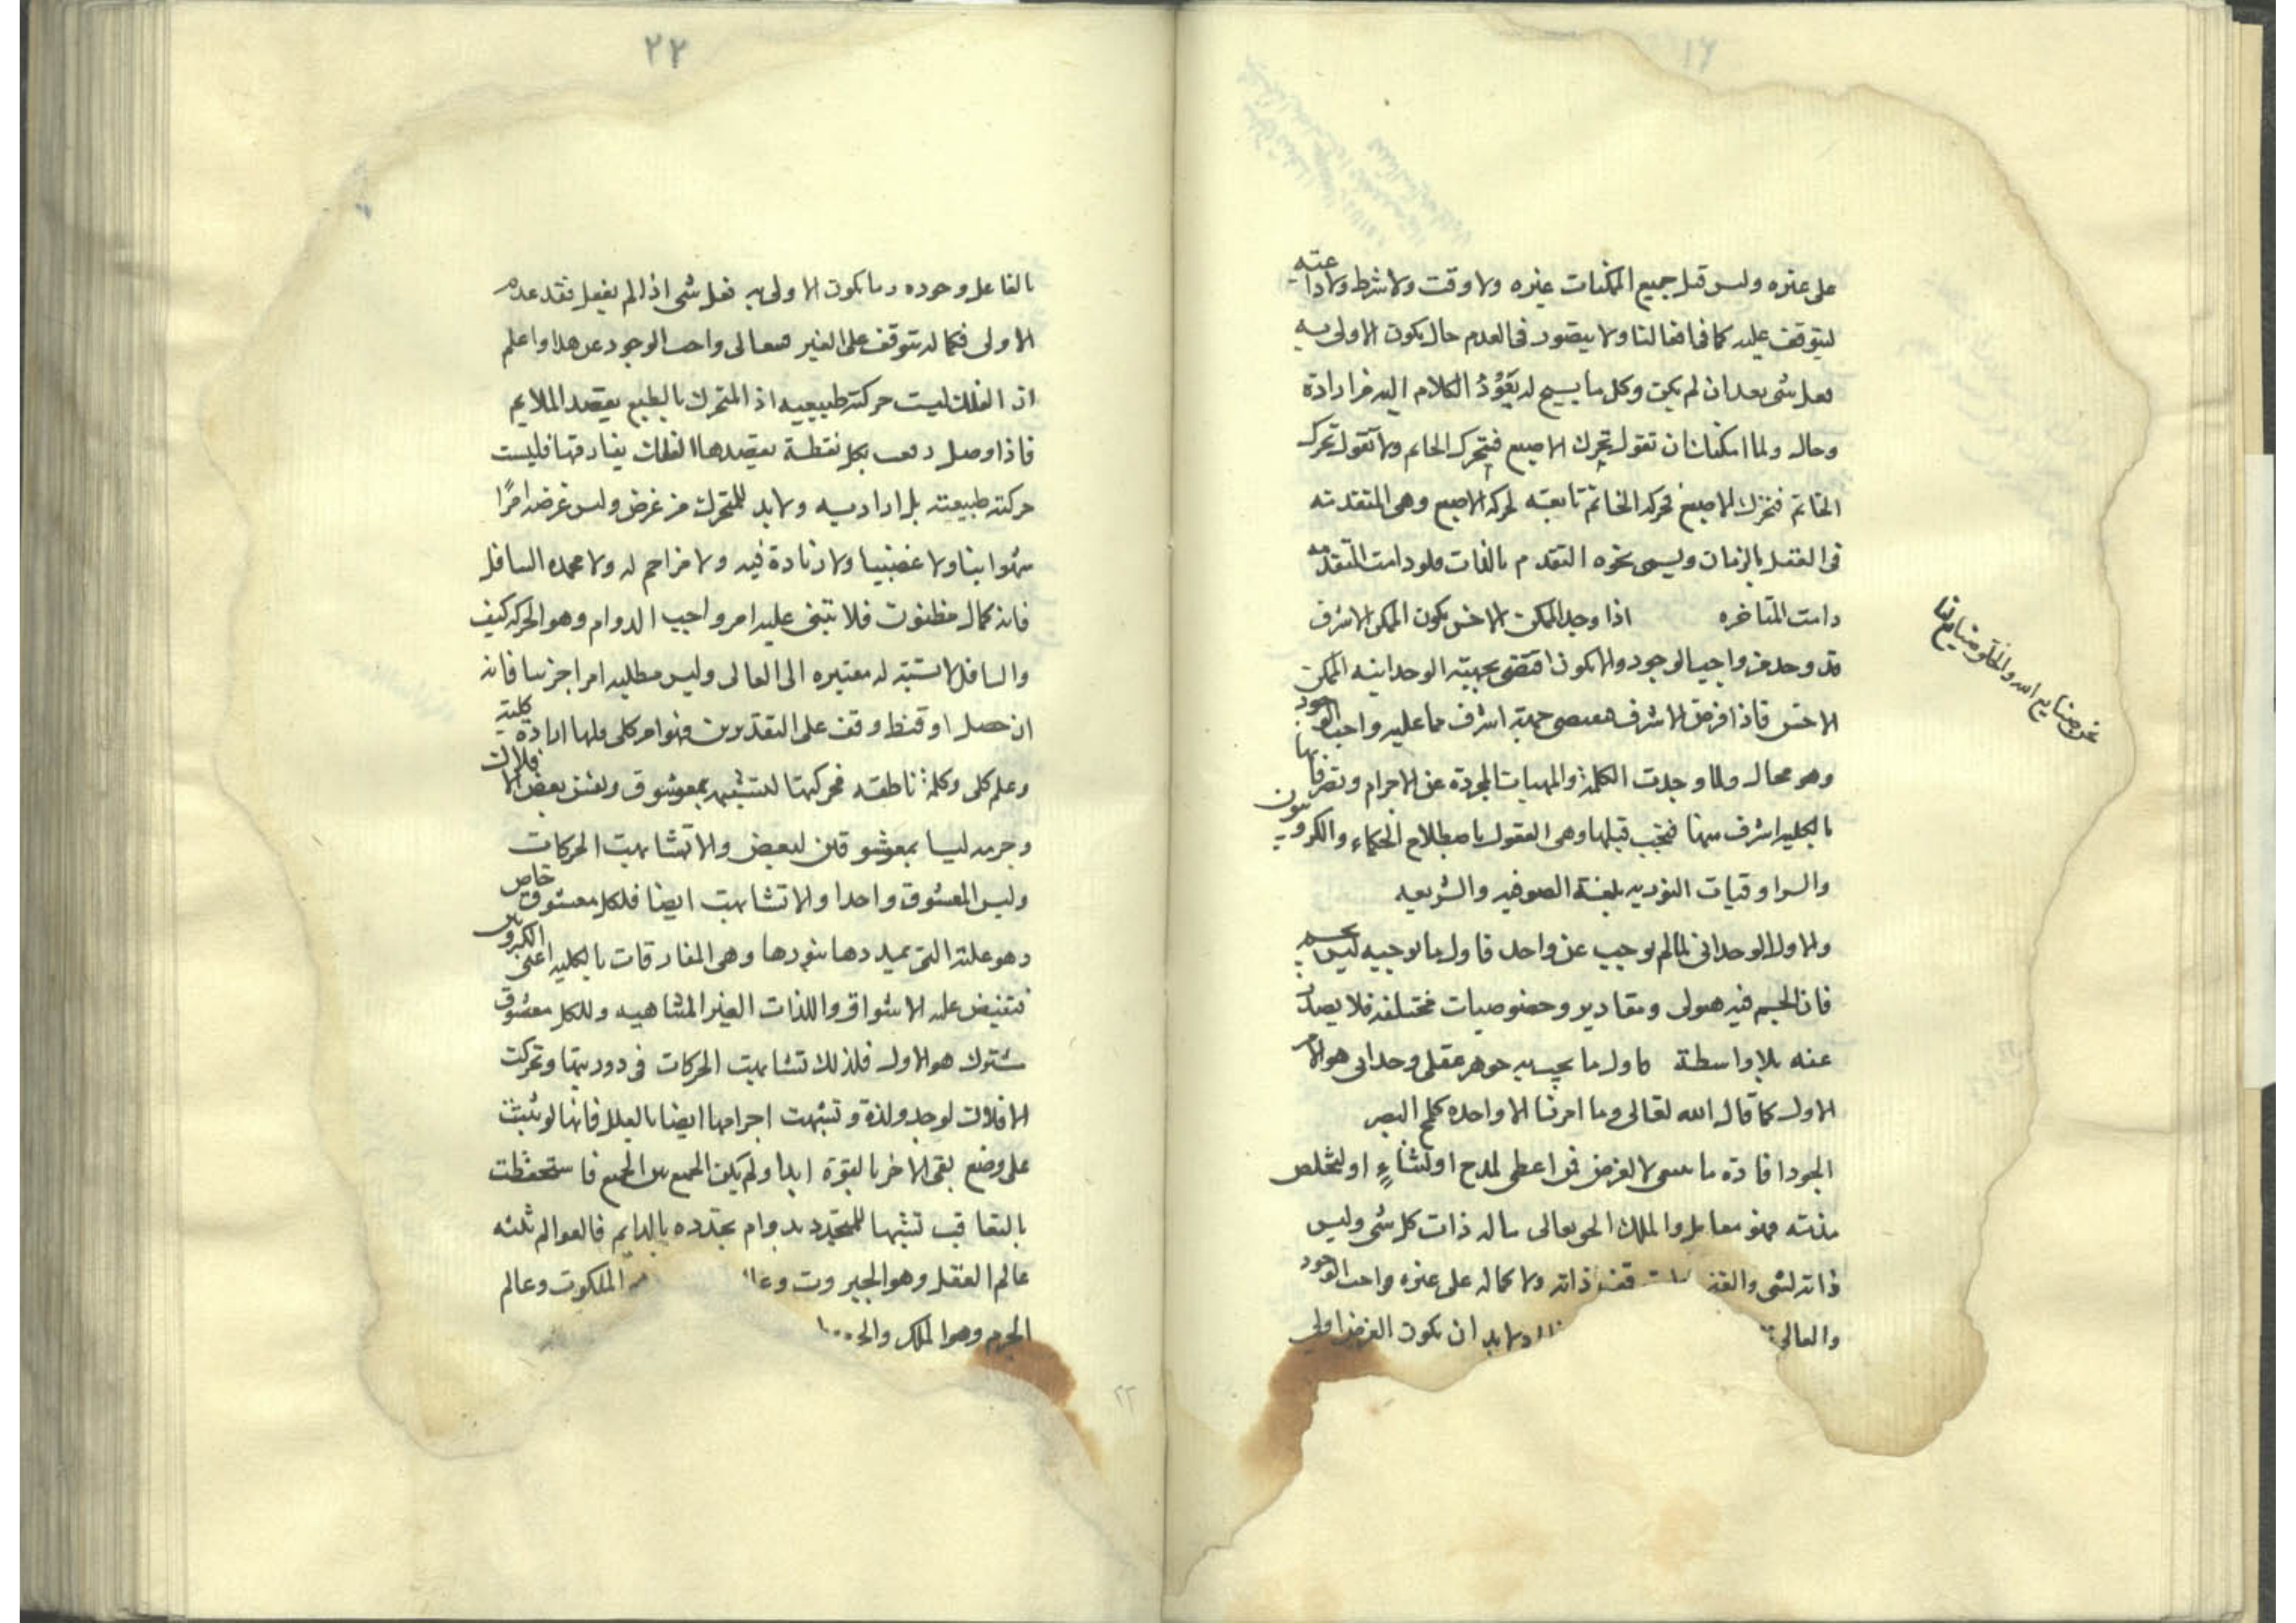 ١٦
على غيره وليس قبل جميع الممكنات غيره ولا وقت ولا شرط ولا داعته
ليتوقف عليه كما فى افعالنا ولا يتصور فى العدم حال يكون الاولى به
فعل شى بعد ان لم يكن وكل ما يسبح له يعود الكلام اليه من ارادة
وحال ولما امكنك ان تقول تحرك الاصبع فيتحرك الخاتم ولا تقول تحرك
الخاتم فتحرك الاصبع فحركة الخاتم تابعته لحركة الاصبع وهى المتقدمته
فى العقل بالزمان ويسمى نحوه التقدم بالذات ولو دامت المتقدمه
دامت المتاخره اذا وجد الممكن الاخس يكون الممكن الاشرف
قد وجد من واجب الوجود والا يكون اقتضى بجهته الوحدانيه الممكن
الاخس فاذا فرض الاشرف فيقتضى جهته اشرف مما عليه واجب الوجود
وهو محال ولما وجدت الكلمة والمهيات المجردة عن الاجرام وتصرفاتها
بالكليه اشرف منها فيجب قبلها وهى العقول باصطلاح الحكماء والكروبيون
والسراوقيات النوريه بلغة الصوفيه والشريعه
والاول الوحدانى لما لم يوجب عن واحد فاول ما يوجبه ليس بجسم
فان الجسم فيه هيولى ومقادير وخصوصيات مختلفه فلا يصدر
عنه بلا واسطة فاول ما يجب به جوهر عقلى وحدانى هو الامر
الاول كما قال الله تعالى وما امرنا الا واحدة كلمح البصر
الجود افادة ما ينبغى لا لغرض فمن اعطى لمدح او لثناءٍ او لتخلص
مذمته فهو معامل والملك الحق تعالى ما له ذات كل شى وليس
ذاته لشى والغنى ذاته ولا كماله على غيره واجب الوجود
والعالى ولا بد ان يكون الغرض اولى
نحن صنايع الله والخلق صنايع لنا
٢٢
بالفاعل وجوده وما يكون الاولى به فعل شى اذا لم يفعل فقد عدم
الاولى فكماله يتوقف على الغير فتعالى واجب الوجود عن هذا واعلم
ان الفلك ليست حركته طبيعيه اذ المتحرك بالطبع يقصد الملايم
فاذا وصل وقف بكل نقطة يقصدها الفلك يفارقها فليست
حركته طبيعته بل اراديه ولا بد للمتحرك من غرض وليس غرضه امرًا
شهوانيا ولا غضبيا ولا زيادة فيه ولا مزاحم له ولا محمدة السافل
فانه كمال مظنون فلا يبتنى عليه امر واجب الدوام وهو الحركة كيف
والسافل لا نسبته له معتبره الى العالى وليس مطلبه امرا جزئيا فانه
ان حصل او قنط وقف على التقديرين فهو امر كلى ولها ارادة كلية
وعلم كلى وكلمة ناطقه فحركتها لتشبه بمعشوق وليس بعض الافلاك
وجرمه ليسا بمعشوقين لبعض والا تشابهت الحركات
وليس المعشوق واحدا والا تشابهت ايضا فلكل معشوق خاص
وهو علته التى يمددها بنورها وهى المفارقات بالكليه اعنى الكروبين
فتفيض عليه الاشواق واللذات الغير المتناهيه وللكل معشوق
مشترك هو الاول فلذلك تشابهت الحركات فى دوريتها وتحركت
الافلاك لوجد ولذة وتشبهت اجرامها ايضا بالعلل فانها لو ثبتت
على وضع بقى الاخر بالقوة ابدا ولم يكن الجمع بين الجميع فاستحفظت
بالتعاقب تشبها للمتجدد بدوام تجدده بالدايم فالعوالم ثلثه
عالم العقل وهو الجبروت الملكوت وعالم
الجرم وهو الملك
٢٢